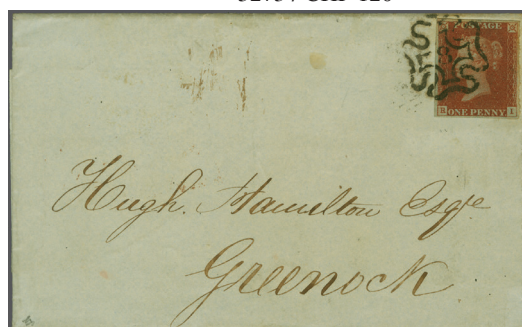 POSTAGE
B I
ONE PENNY
Hugh. Hamilton Esqre
Greenock